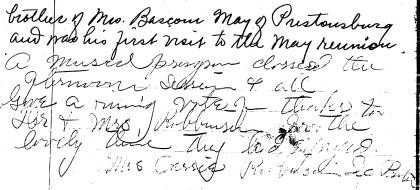 brother of Mrs. Bascom May of Prestonsburg
and was his first visit to the May reunion.
A musical program closed the
afternoon session & all
Gave a rising vote of thanks to
Mr & Mrs. Robinson for the
lovely time they had enjoyed.
Mrs